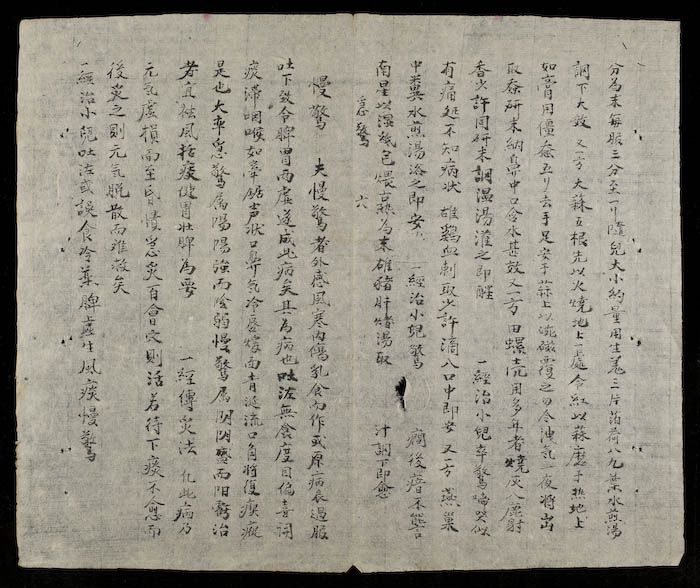 分為末每服三分至一リ隨兒大小約量用生姜三片泊荷八九葉水煎湯
調下大效 又方 大蒜五根先以火燒地上一處令紅以蒜磨于热地上
如膏用僵蚕五リ去手足安于蒜上以碗磁覆之勿令洩氣一夜將出
取蚕研末納鼻中口含水甚效 又一方 田螺壳用多年者燒灰入麝射
香少許同研末調温湯灌之即醒 一經治小兒卒驚啼哭似
有痛処不知病状 雄鷄血刺取少許滴入口中即安 又方 燕巢
中糞水煎湯浴之即安 一經治小兒驚 癇後瘖未能言
南星以湿紙包煨熟為末雄豬肝猪湯取 汁調下即愈
急驚 六
慢驚 夫慢驚者外感風寒内傷乳食而作或原病表過服
吐下致令脾胃而虛遂成此病矣其為病也吐泣無食度目偏喜闭
痰滞咽喉如牽鋸声状口鼻气冷唇緩面青涎流口角將復瘼瘲
是也大率急驚属陽陽強而陰弱慢驚属阴阴盛而阳虧治
者宜祛風括痰健胃壮脾為要 一經傳灸法 凢此病乃
元氣虛損而至昏憒急灸百會穴則活若待下痰不愈而
後灸之則元氣脱散而难救矣
一經治小兒吐泣或誤食冷藥脾虛生風痰慢驚